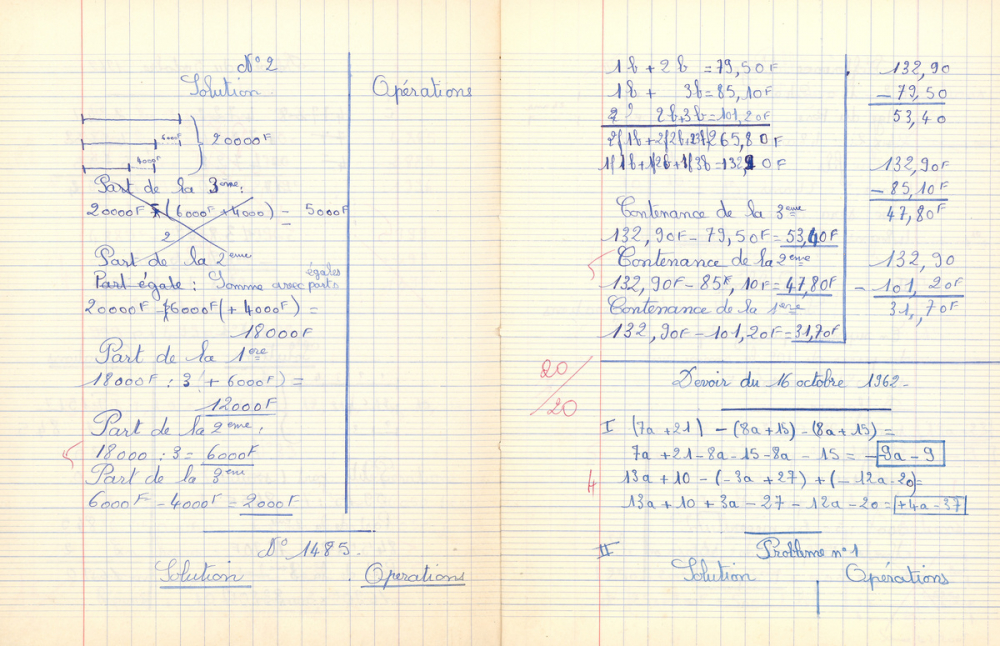 N° 2
Solution
Opérations
6000F
20000F
4000F
Part de la 3ème:
20000F - (6000F + 4000) = 5000F
2
Part de la 2ème
Part égale : Somme avec parts égales
20000F - 6000F (+ 4000F) =
18000F
Part de la 1ère
18000F : 3 (+ 6000F) =
12000F
Part de la 2ème :
18000 : 3 = 6000F
5
Part de la 3ème
6000F - 4000F = 2000F
N° 1485.
Solution
Operations
1b + 2b = 79,50F
1b + 3b = 85,10F
2b+3b=101,20F
265,80F
Contenance de la 3ème
132,90F - 79,50F = 53,40F
Contenance de la 2ème
5
132,90F - 85F,10F = 47,80F
Contenance de la 1ère
132,90F - 101,20F = 31,70F
132,90
- 79,50
53,40
132,90F
- 85,10F
47,80F
132,90
- 101,20F
31,70F
20/20
Devoir du 16 octobre 1962-
I (7a + 21) - (8a + 15) - (8a + 15) =
7a + 21 - 8a - 15 - 8a - 15 = -9a - 9
4
13a + 10 - (-3a + 27) + (-12a - 20) =
13a + 10 + 3a - 27 - 12a - 20 = +4a - 37
II Problème n° 1
Solution
Opérations